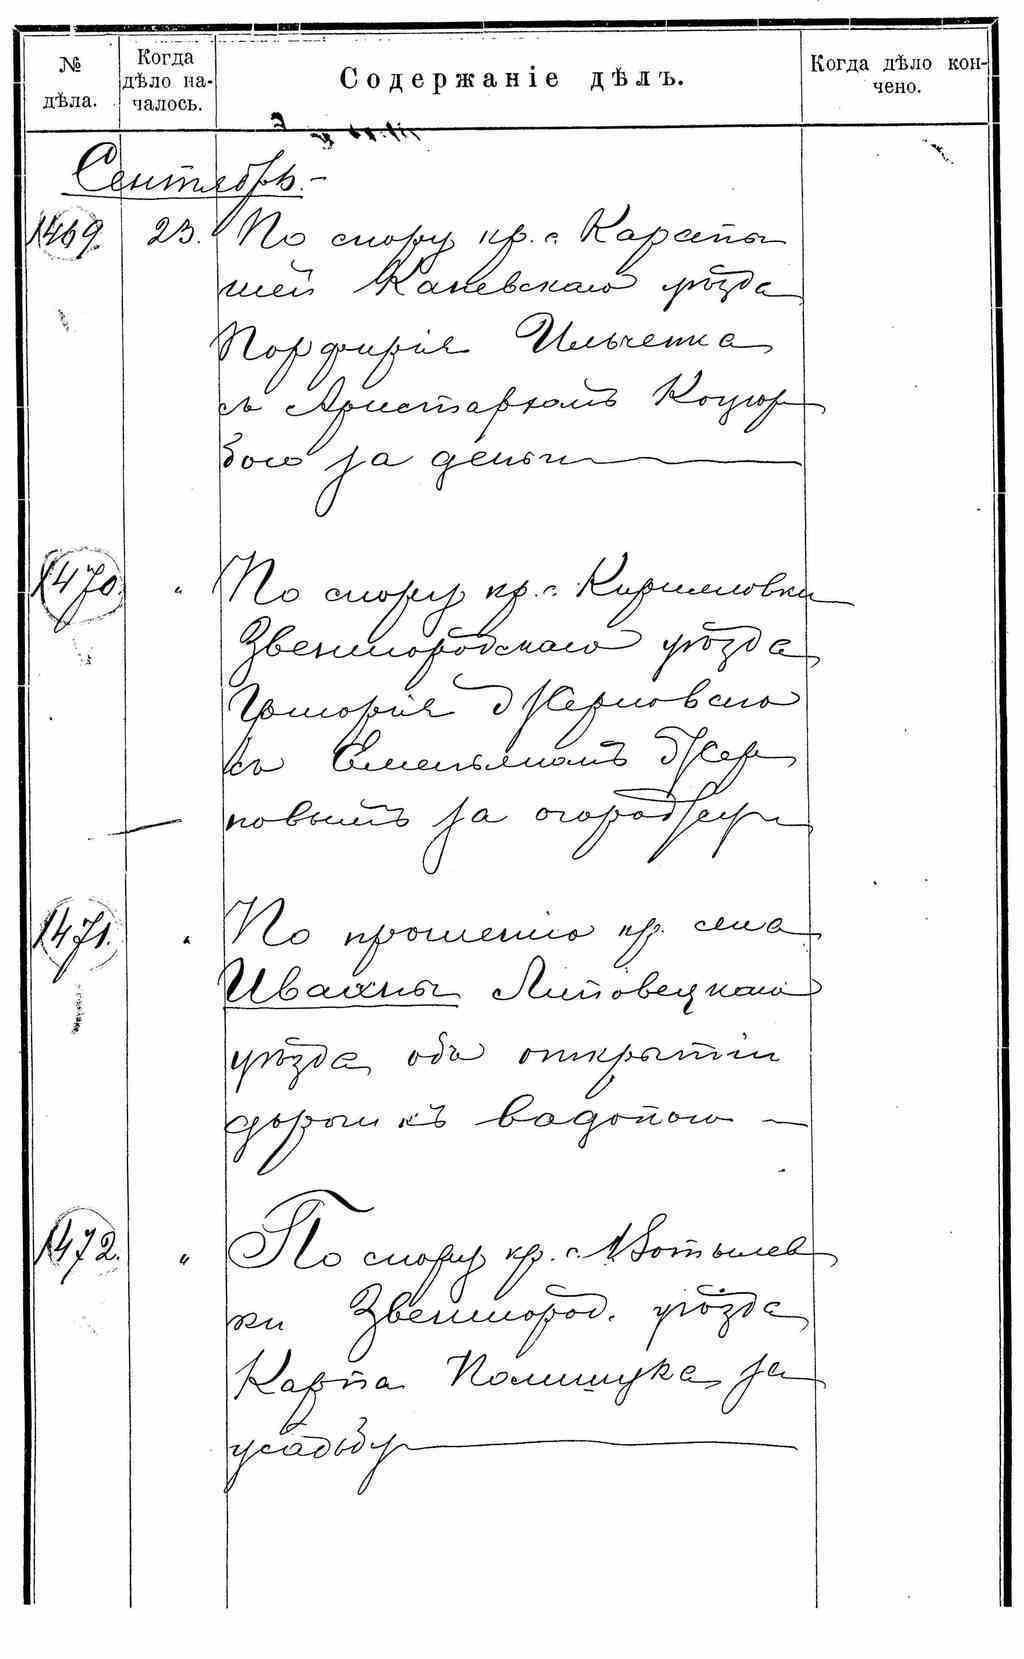 № дѣла. Когда дѣло началось. Содержаніе дѣлъ. Когда дѣло кончено.
Сентябрь.-
1469. 23. По спору кр. с. Карапы
шей Каневскаго уѣзда
Порфирія Ильченка
съ Аристархомъ Коцюр
бою за деньги
1470. " По спору кр. с. Кирилловки
Звенигородскаго уѣзда
Григорія
съ Емельяномъ
новымъ за огород
1471. " По прошенію кр. села
Ивахны Липовецкаго
уѣзда объ открытіи
дороги къ вадопою —
1472. " По спору кр. с. Мотылев
ки Звенигород. уѣзда
Карпа Полищука за
усадьбу